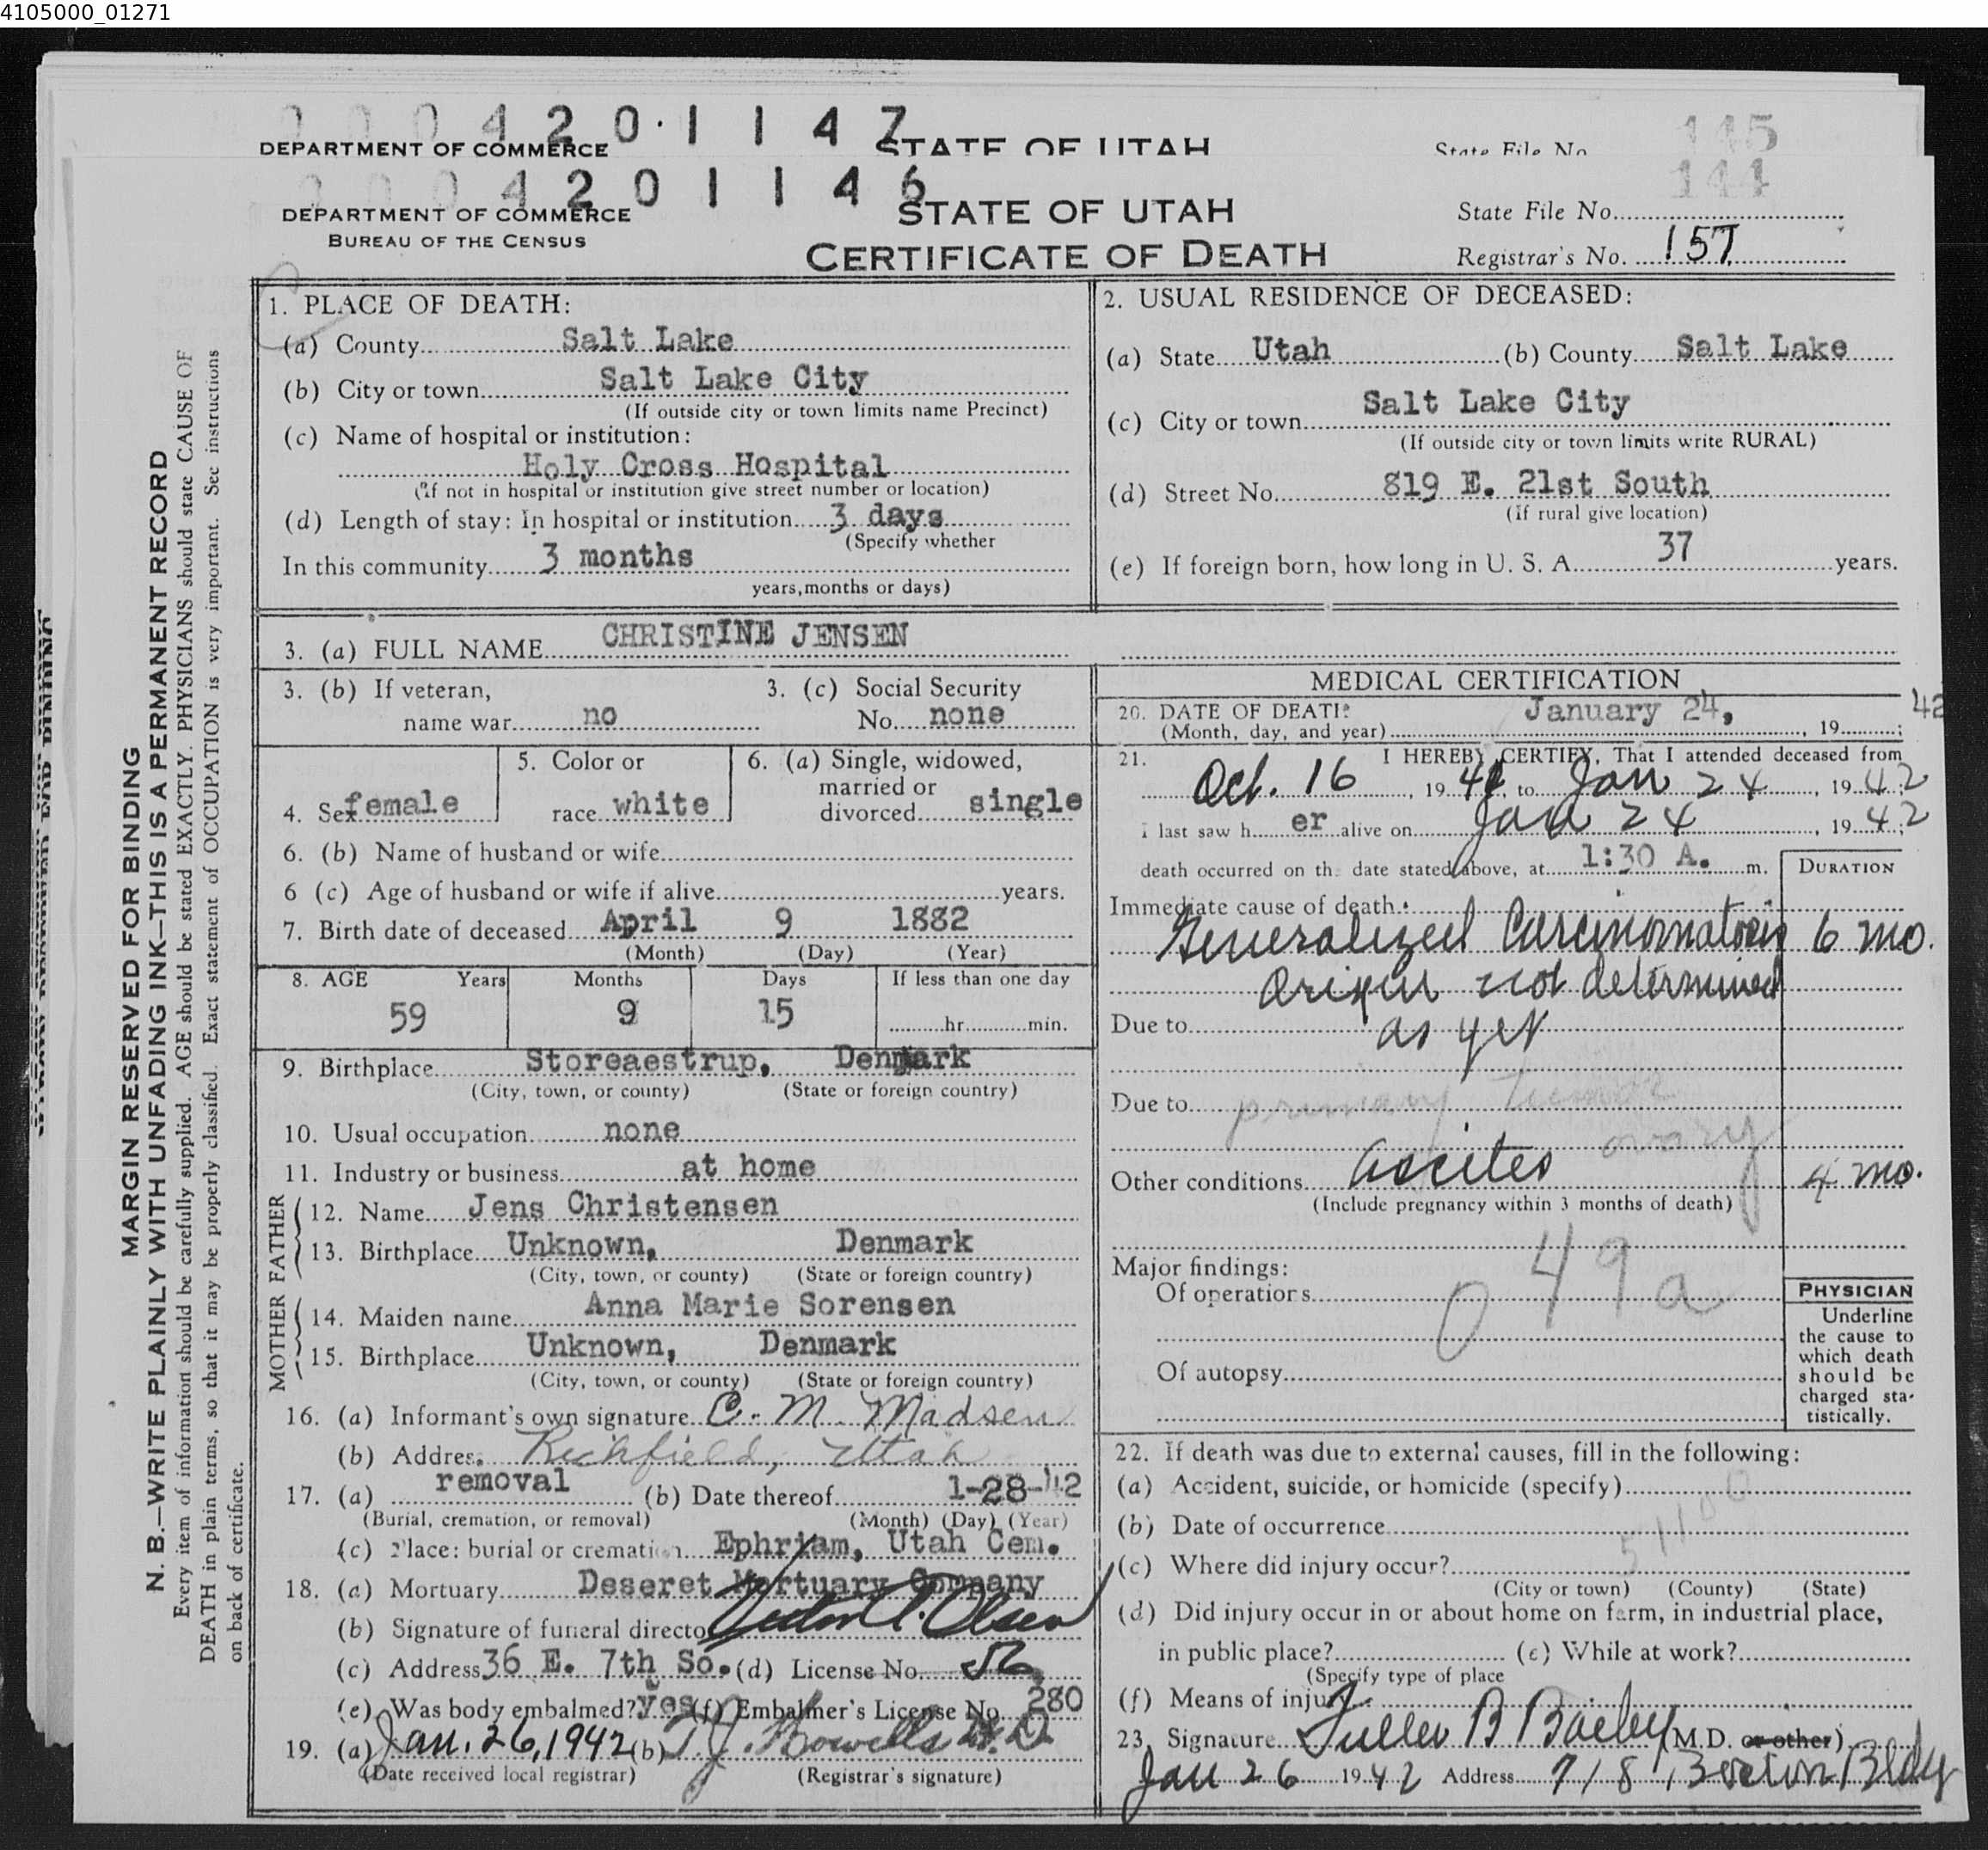 4105000_01271
0004201147
DEPARTMENT OF COMMERCE STATE OF UTAH State File No. 145
0004201146
DEPARTMENT OF COMMERCE STATE OF UTAH State File No. 144
BUREAU OF THE CENSUS CERTIFICATE OF DEATH Registrar's No. 157
MARGIN RESERVED FOR BINDING
N. B.—WRITE PLAINLY WITH UNFADING INK—THIS IS A PERMANENT RECORD
Every item of information should be carefully supplied. AGE should be stated EXACTLY. PHYSICIANS should state CAUSE OF
DEATH in plain terms, so that it may be properly classified. Exact statement of OCCUPATION is very important. See instructions
on back of certificate.
1. PLACE OF DEATH:
(a) County Salt Lake
(b) City or town Salt Lake City
(If outside city or town limits name Precinct)
(c) Name of hospital or institution:
Holy Cross Hospital
(If not in hospital or institution give street number or location)
(d) Length of stay: In hospital or institution 3 days
(Specify whether
In this community 3 months
years, months or days)
2. USUAL RESIDENCE OF DECEASED:
(a) State Utah (b) County Salt Lake
(c) City or town Salt Lake City
(If outside city or town limits write RURAL)
(d) Street No. 819 E. 21st South
(If rural give location)
(e) If foreign born, how long in U. S. A. 37 years.
3. (a) FULL NAME CHRISTINE JENSEN
3. (b) If veteran, 3. (c) Social Security
name war no No. none
4. Sex female 5. Color or race white 6. (a) Single, widowed, married or divorced single
6. (b) Name of husband or wife
6 (c) Age of husband or wife if alive years.
7. Birth date of deceased April 9 1882
(Month) (Day) (Year)
8. AGE Years Months Days If less than one day
59 9 15 hr. min.
9. Birthplace Storeaestrup, Denmark
(City, town, or county) (State or foreign country)
10. Usual occupation none
11. Industry or business at home
FATHER
12. Name Jens Christensen
13. Birthplace Unknown, Denmark
(City, town, or county) (State or foreign country)
MOTHER
14. Maiden name Anna Marie Sorensen
15. Birthplace Unknown, Denmark
(City, town, or county) (State or foreign country)
16. (a) Informant's own signature C. M. Madsen
(b) Address Richfield, Utah
17. (a) removal (b) Date thereof 1-28-42
(Burial, cremation, or removal) (Month) (Day) (Year)
(c) Place: burial or cremation Ephriam, Utah Cem.
18. (a) Mortuary Deseret Mortuary Company
(b) Signature of funeral director Olsen
(c) Address 36 E. 7th So. (d) License No. 56
(e) Was body embalmed? yes (f) Embalmer's License No. 280
19. (a) Jan. 26, 1942 (b) T. J. Howells M.D.
(Date received local registrar) (Registrar's signature)
MEDICAL CERTIFICATION
20. DATE OF DEATH January 24, 1942
(Month, day, and year)
21. I HEREBY CERTIFY, That I attended deceased from
Oct. 16, 1941, to Jan 24, 1942;
I last saw her alive on Jan 24, 1942;
death occurred on the date stated above, at 1:30 A. m. DURATION
Immediate cause of death:
Generalized Carcinomatosis 6 mo.
Origin not determined
Due to as yet
Due to primary tumor
ovary
Other conditions Ascites 4 mo.
(Include pregnancy within 3 months of death)
Major findings:
Of operations 049a
Of autopsy
PHYSICIAN
Underline
the cause to
which death
should be
charged sta-
tistically.
22. If death was due to external causes, fill in the following:
(a) Accident, suicide, or homicide (specify)
(b) Date of occurrence
(c) Where did injury occur?
(City or town) (County) (State)
(d) Did injury occur in or about home on farm, in industrial place,
in public place? (e) While at work?
(Specify type of place
(f) Means of injury
23. Signature Fuller B Bailey (M.D. or other)
Jan 26 1942 Address 718 Boston Bldg